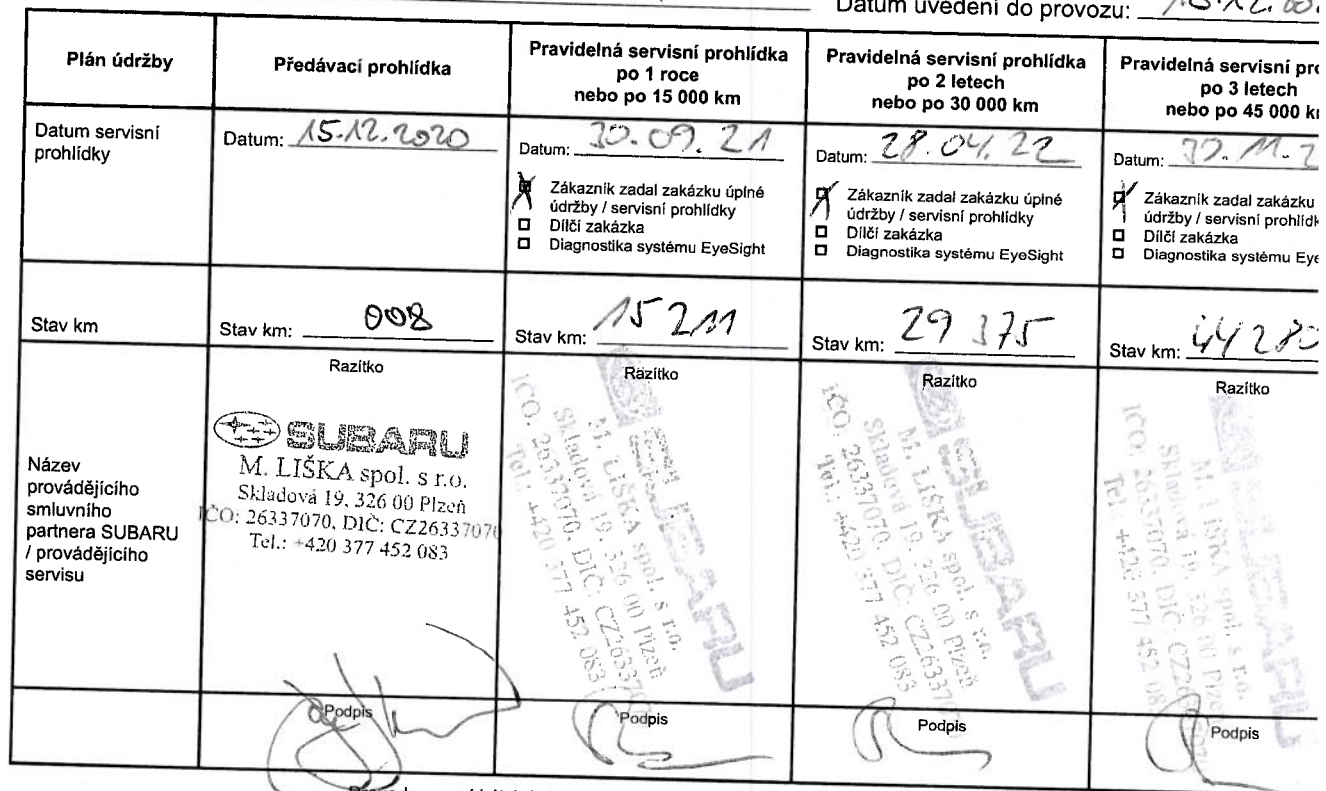 Datum uvedení do provozu: 15.12.
Plán údržby
Předávací prohlídka
Pravidelná servisní prohlídka
po 1 roce
nebo po 15 000 km
Pravidelná servisní prohlídka
po 2 letech
nebo po 30 000 km
Pravidelná servisní pro
po 3 letech
nebo po 45 000 k
Datum servisní
prohlídky
Datum: 15.12.2020
Datum: 30.09.21
Zákazník zadal zakázku úplné
údržby / servisní prohlídky
Dílčí zakázka
Diagnostika systému EyeSight
Datum: 28.04.22
Zákazník zadal zakázku úplné
údržby / servisní prohlídky
Dílčí zakázka
Diagnostika systému EyeSight
Datum: 30.11.2
Zákazník zadal zakázku
údržby / servisní prohlídk
Dílčí zakázka
Diagnostika systému Eye
Stav km
Stav km: 008
Stav km: 15 211
Stav km: 29 375
Stav km: 44 280
Název
provádějícího
smluvního
partnera SUBARU
/ provádějícího
servisu
Razítko
SUBARU
M. LIŠKA spol. s r.o.
Skladová 19, 326 00 Plzeň
IČO: 26337070, DIČ: CZ26337070
Tel.: +420 377 452 083
Podpis
Razítko
SUBARU
M. LIŠKA spol. s r.o.
Skladová 19, 326 00 Plzeň
IČO: 26337070, DIČ: CZ26337
Tel.: +420 377 452 083
Podpis
Razítko
SUBARU
M. LIŠKA spol. s r.o.
Skladová 19, 326 00 Plzeň
IČO: 26337070, DIČ: CZ26337
Tel.: +420 377 452 083
Podpis
Razítko
SUBARU
M. LIŠKA spol. s r.o.
Skladová 19, 326 00 Plzeň
IČO: 26337070, DIČ: CZ26
Tel.: +420 377 452 083
Podpis